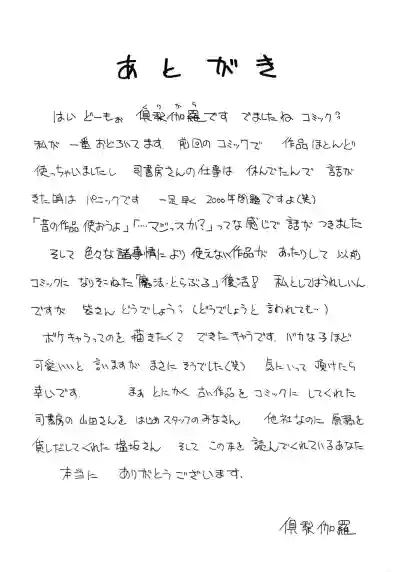 あとがき
はい どーもぉ 倶梨伽羅です でましたね コミック?
私が 一番 おどろいてます 前回のコミックで 作品ほとんど
使っちゃいましたし 司書房さんの仕事は 休んでたんで 話が
きた時は パニックです 一足早く 2000年問題ですよ(笑)
「昔の作品使おうよ」「…マジっスカ?」ってな感じで話がつきました
そして 色々な諸事情により使えない作品が あったりして 以前
コミックに なりそこねた「魔法・とらぶる」復活! 私としてはうれしいん
ですが 皆さん どうでしょう?(どうでしょうと 言われても…)
ボケキャラってのを 描きたくて できたキャラです. バカな子ほど
可愛いいと 言いますが まさに そうでした(笑) 気にいって 頂けたら
幸いです. まぁ とにかく 古い作品を コミックに してくれた
司書房の 山田さんを はじめ スタッフのみなさん 他社なのに 原稿を
貸しだしてくれた 塩坂さん そして この本を 読んでくれているあなた
本当に ありがとうございます.
倶梨伽羅